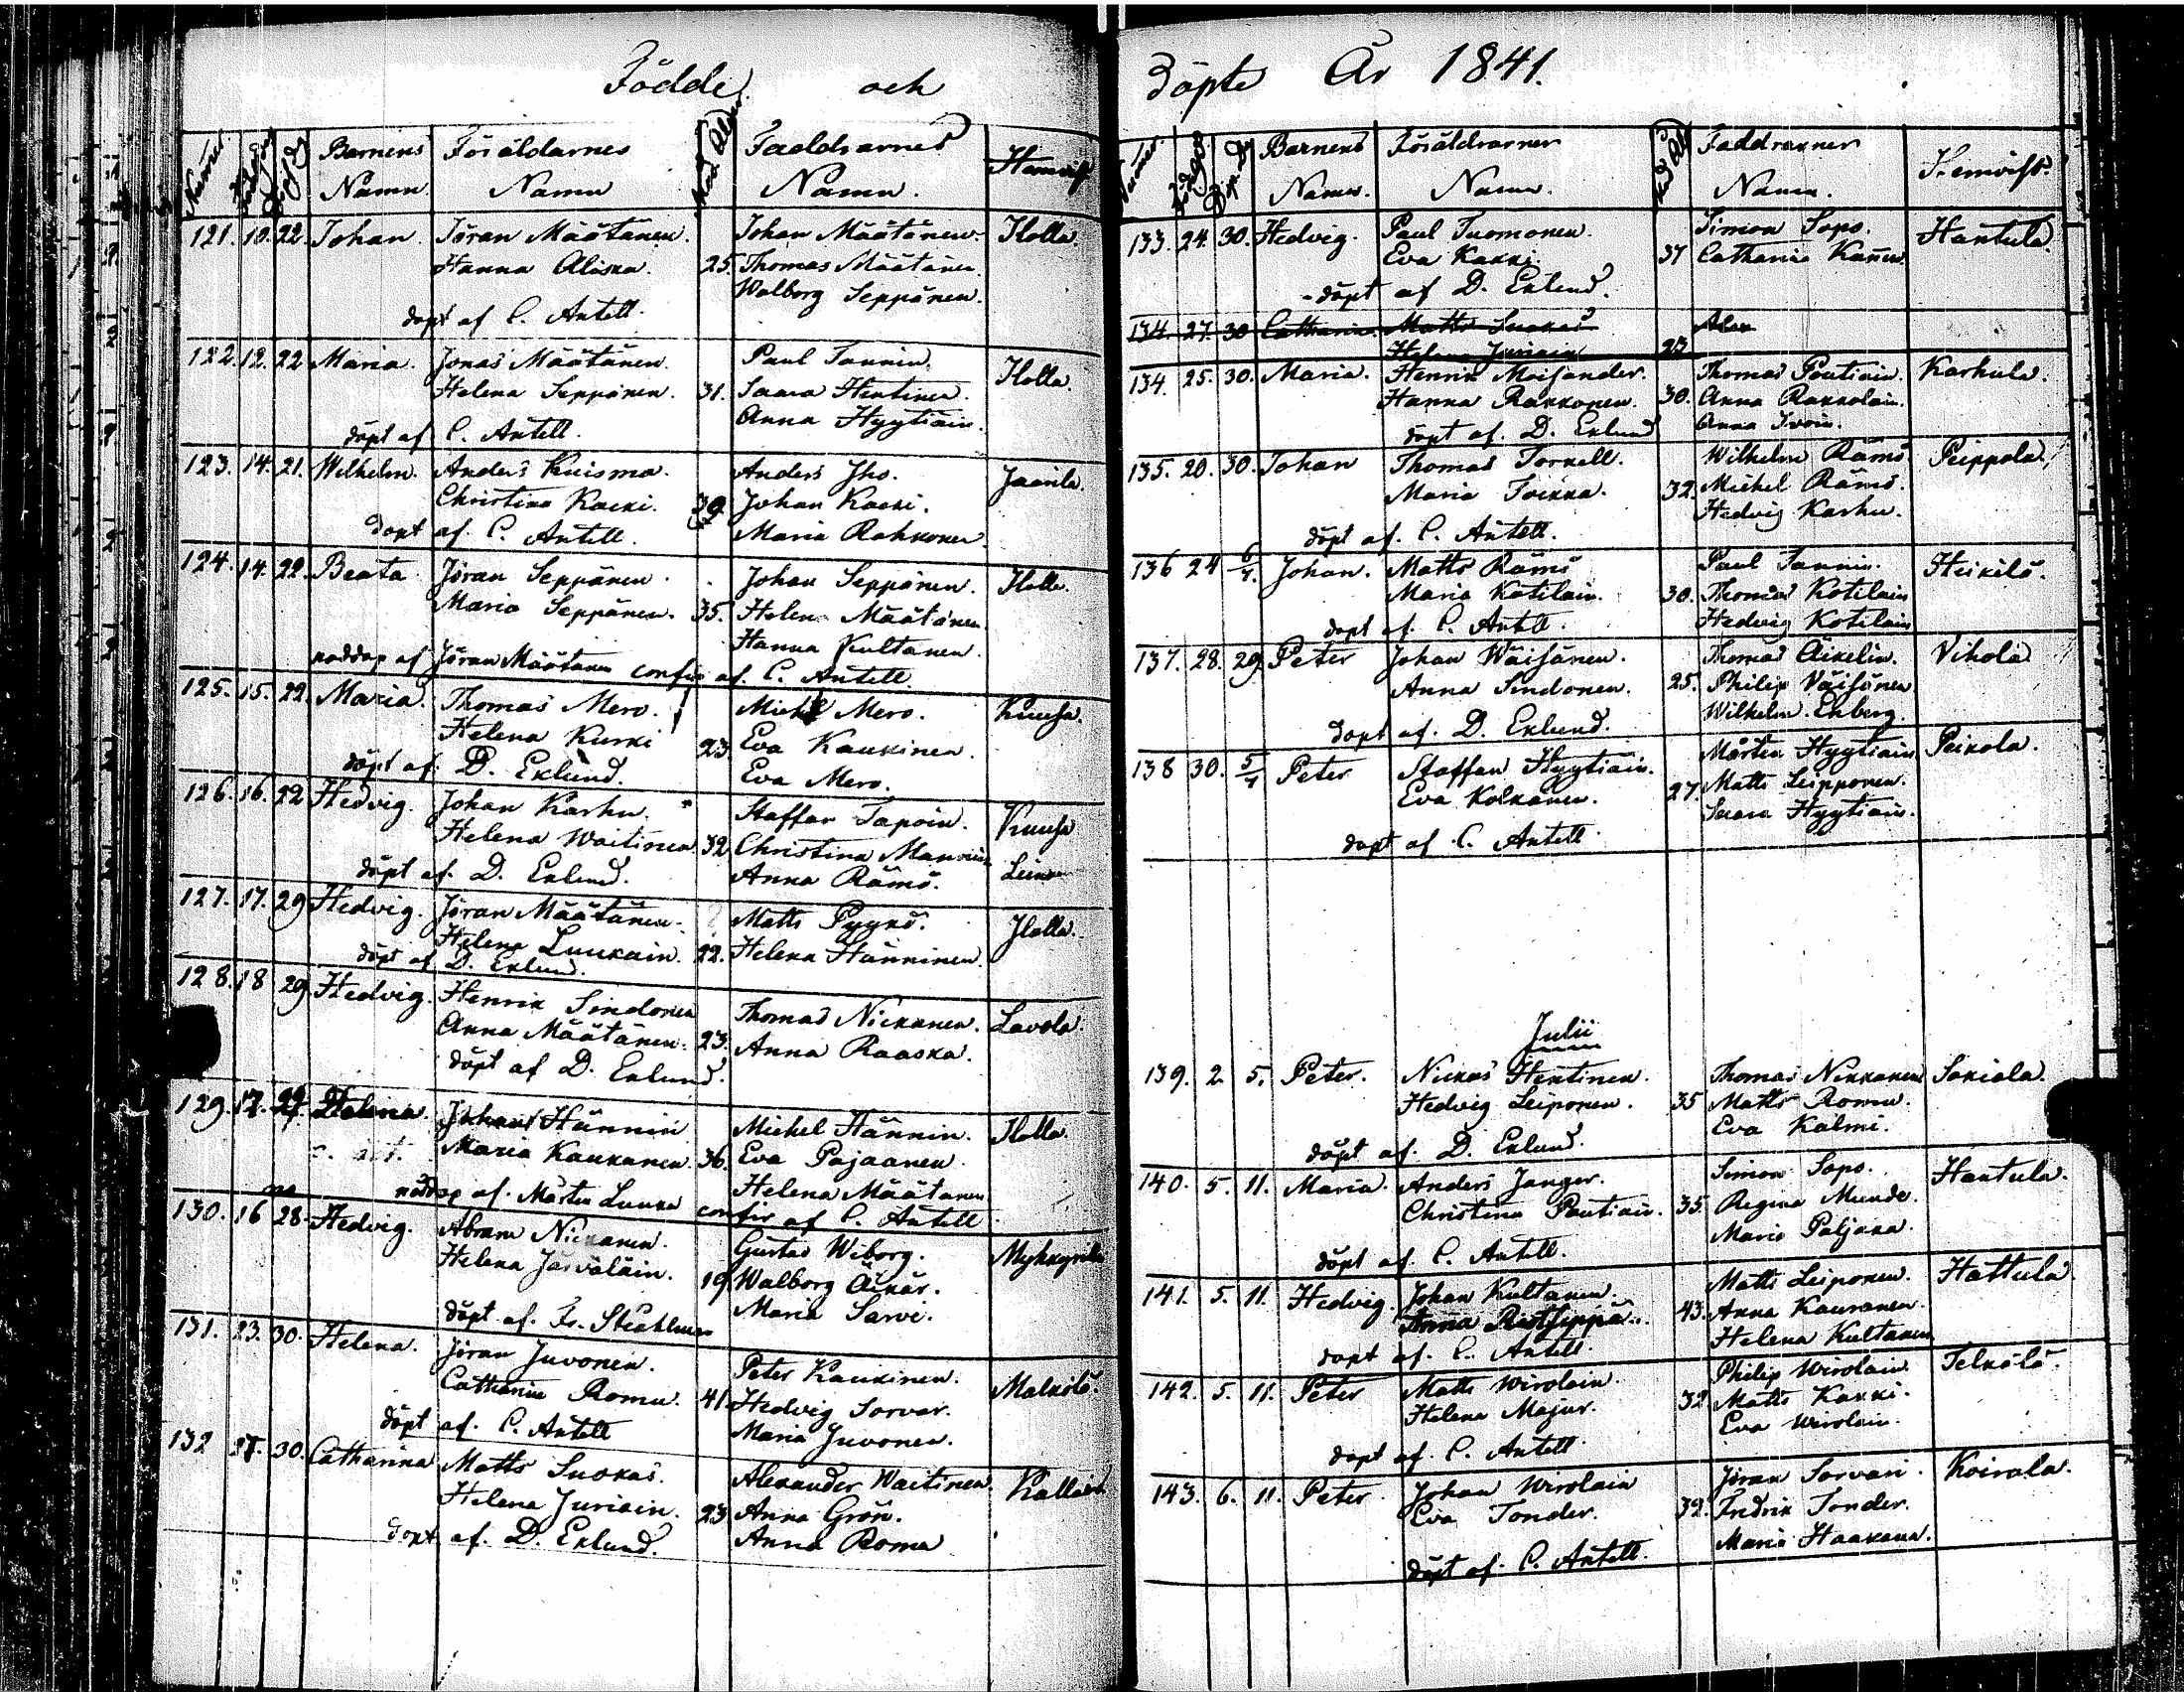 Födde och
Barnens Föräldarnes Faddrarnes
Namn Namn Namn. Hemvist
121. 10. 22. Johan. Jöran Määtänen. Johan Määtänen. Ilolla.
Hanna Aliska. 25. Thomas Määtänen.
Walborg Seppänen.
döpt af C. Antell.
122. 12. 22 Maria. Jonas Määtänen. Paul Tannin. Ilolla.
Helena Seppänen. 31. Saara Hentinen.
Anna Hyytiäin.
döpt af C. Antell.
123. 14. 21. Wilhelm. Anders Kuisma. Anders Iho. Jaarila
Christina Kaeki. 39. Johan Kaeki.
Maria Rahkonen
döpt af. C. Antell.
124. 14. 22. Beata Jöran Seppänen. Johan Seppänen. Ilolla.
Maria Seppänen. 35. Helena Määtänen
Hanna Kultanen.
nöddöp af Jöran Määtänen confir af. C. Antell.
125. 15. 22. Maria. Thomas Mero. Michel Mero. Kuusa.
Helena Kurki 23. Eva Kaukinen
Eva Mero.
döpt af D. Eklund.
126. 16. 22 Hedvig. Johan Karhu. Staffan Tapoin. Kuusa
Helena Waitinen 32 Christina Mannin
Anna Rämö.
döpt af. D. Eklund.
127. 17. 29 Hedvig. Jöran Määtänen. Matts Pyykö. Ilolla.
Helena Luukain. 22. Helena Hänninen.
döpt af D. Eklund.
128. 18 29 Hedvig. Henrik Sindonen Thomas Nickanen. Lavola.
Anna Määtänen. 23. Anna Raaska.
döpt af D. Eklund.
129. 17. Helena. Johan Hännin Michel Hännin. Ilolla.
Maria Kaukanen 36. Eva Pajaanen
Helena Määtänen
nöddöp af. Mårten Luuka confir af C. Antell
130. 16 28. Hedvig. Abram Nickanen. Gustav Wiborg.
Helena Järväläin. 19 Walborg Äikäs.
Maria Sarvi.
döpt af. Fr. Stråhlman
131. 23. 30. Helena. Jöran Juvonen. Peter Kaukinen. Malkilä.
Catharina Romu. 41. Hedvig Sorvar.
Maria Juvonen.
döpt af. C. Antell
132 27. 30. Catharina Matts Suokas. Alexander Waitinen
Helena Juriain. 23 Anna Grön.
Anna Roma
döpt af. D. Eklund.
Döpte År 1841.
Barnens Föräldrarner Faddrarner
Namn. Namn. Namn. Hemvist.
133. 24. 30. Hedvig. Paul Tuomonen. Simon Sopo. Hantula.
Eva Kakki. 37 Catharina
döpt af D. Eklund.
134. 27. 30 Catharina Matts Suokas Alex
Helena Juriain 23
134. 25. 30. Maria. Henrik Moisander. Thomas Poutiain. Karhula.
Hanna Rakkonen. 30. Anna Rakkolain.
Anna Ivoin.
döpt af. D. Eklund
135. 20. 30. Johan Thomas Torkell. Wilhelm Rämö. Peippola.
Maria Toikka. 32. Michel Rämö.
Hedvig Karhu.
döpt af. C. Antell.
136 24 6/7. Johan. Matts Rämö Paul Tannin. Heikilä.
Maria Kotilain. 30. Thomas Kotilain
Hedvig Kotilain
döpt af. C. Antell.
137. 28. 29 Peter Johan Wäisänen. Thomas Äikelin. Vikola
Anna Sindonen. 25. Philip Väisänen
Wilhelm. Ekberg.
döpt af. D. Eklund.
138 30. 5/7 Peter Staffan Hyytiäin. Mårten Hyytiäin Peikola.
Eva Kolkanen. 27. Matts Leipponen.
Saara Hyytiäin.
döpt af C. Antell.
Julii
139. 2 5. Peter. Nickas Hentinen. Thomas Nikkanen Sokiala.
Hedvig Leiponen. 35 Matts Romu.
Eva Kalmi.
döpt af. D. Eklund.
140. 5. 11. Maria. Anders Janger. Simon Sopo. Hantula.
Christina Poutiain. 35. Regina Munde.
Maria Paljaka
döpt af C. Antell.
141. 5. 11. Hedvig. Johan Kultanen. Matts Leiponen. Hattula
Anna Ristseppä. 43. Anna Kauranen.
Helena Kultanen
döpt af. C. Antell.
142. 5. 11. Peter Matts Wirolain. Philip Wirolain Telkälä.
Helena Majur. 32. Matts Kakki.
Eva Wirolain.
döpt af. C. Antell.
143. 6. 11. Peter. Johan Wirolain Jöran Sorvari. Koirala.
Eva Tonder. 32. Fredrik Tonder.
Maria Haakana.
döpt af. C. Antell.